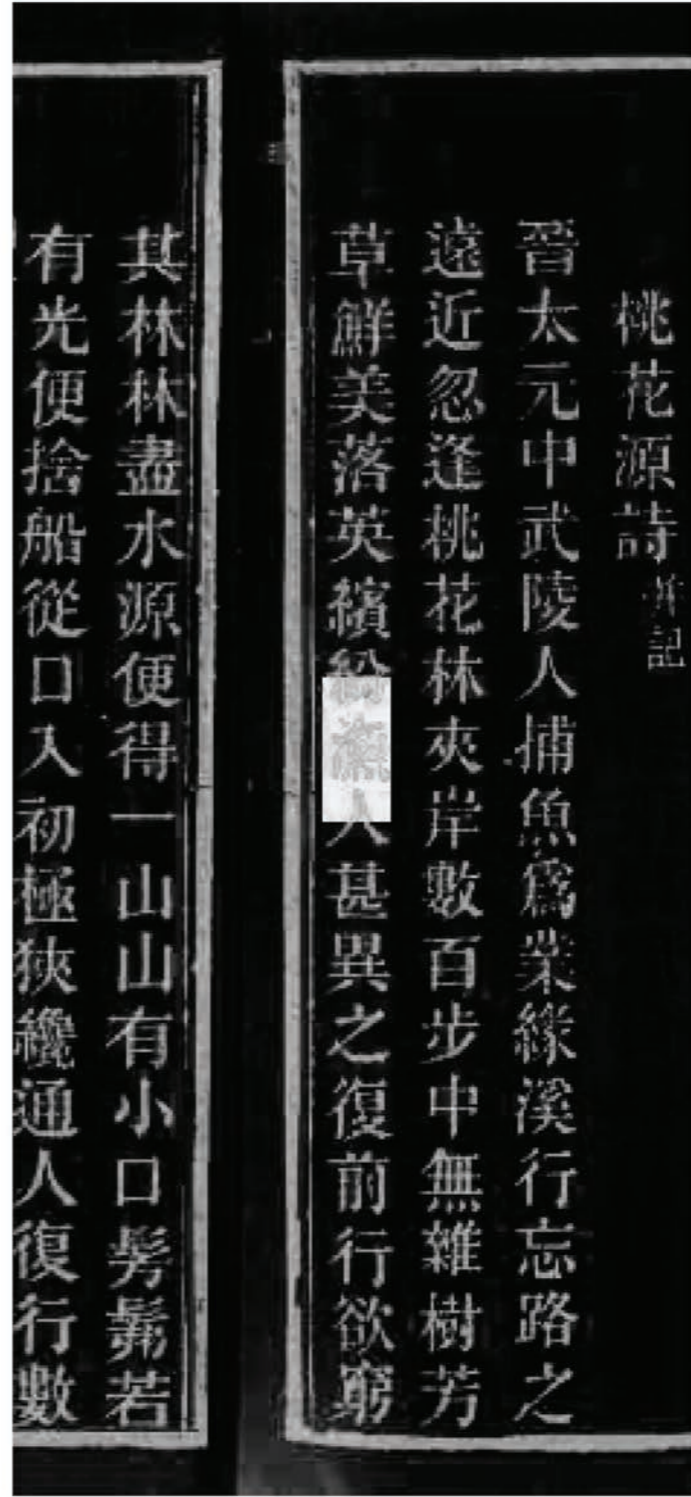 桃花源詩并記
晉太元中武陵人捕魚爲業緣溪行忘路之
遠近忽逢桃花林夾岸數百步中無雜樹芳
草鮮美落英繽紛漁人甚異之復前行欲窮
其林林盡水源便得一山山有小口髣髴若
有光便捨船從口入初極狹纔通人復行數